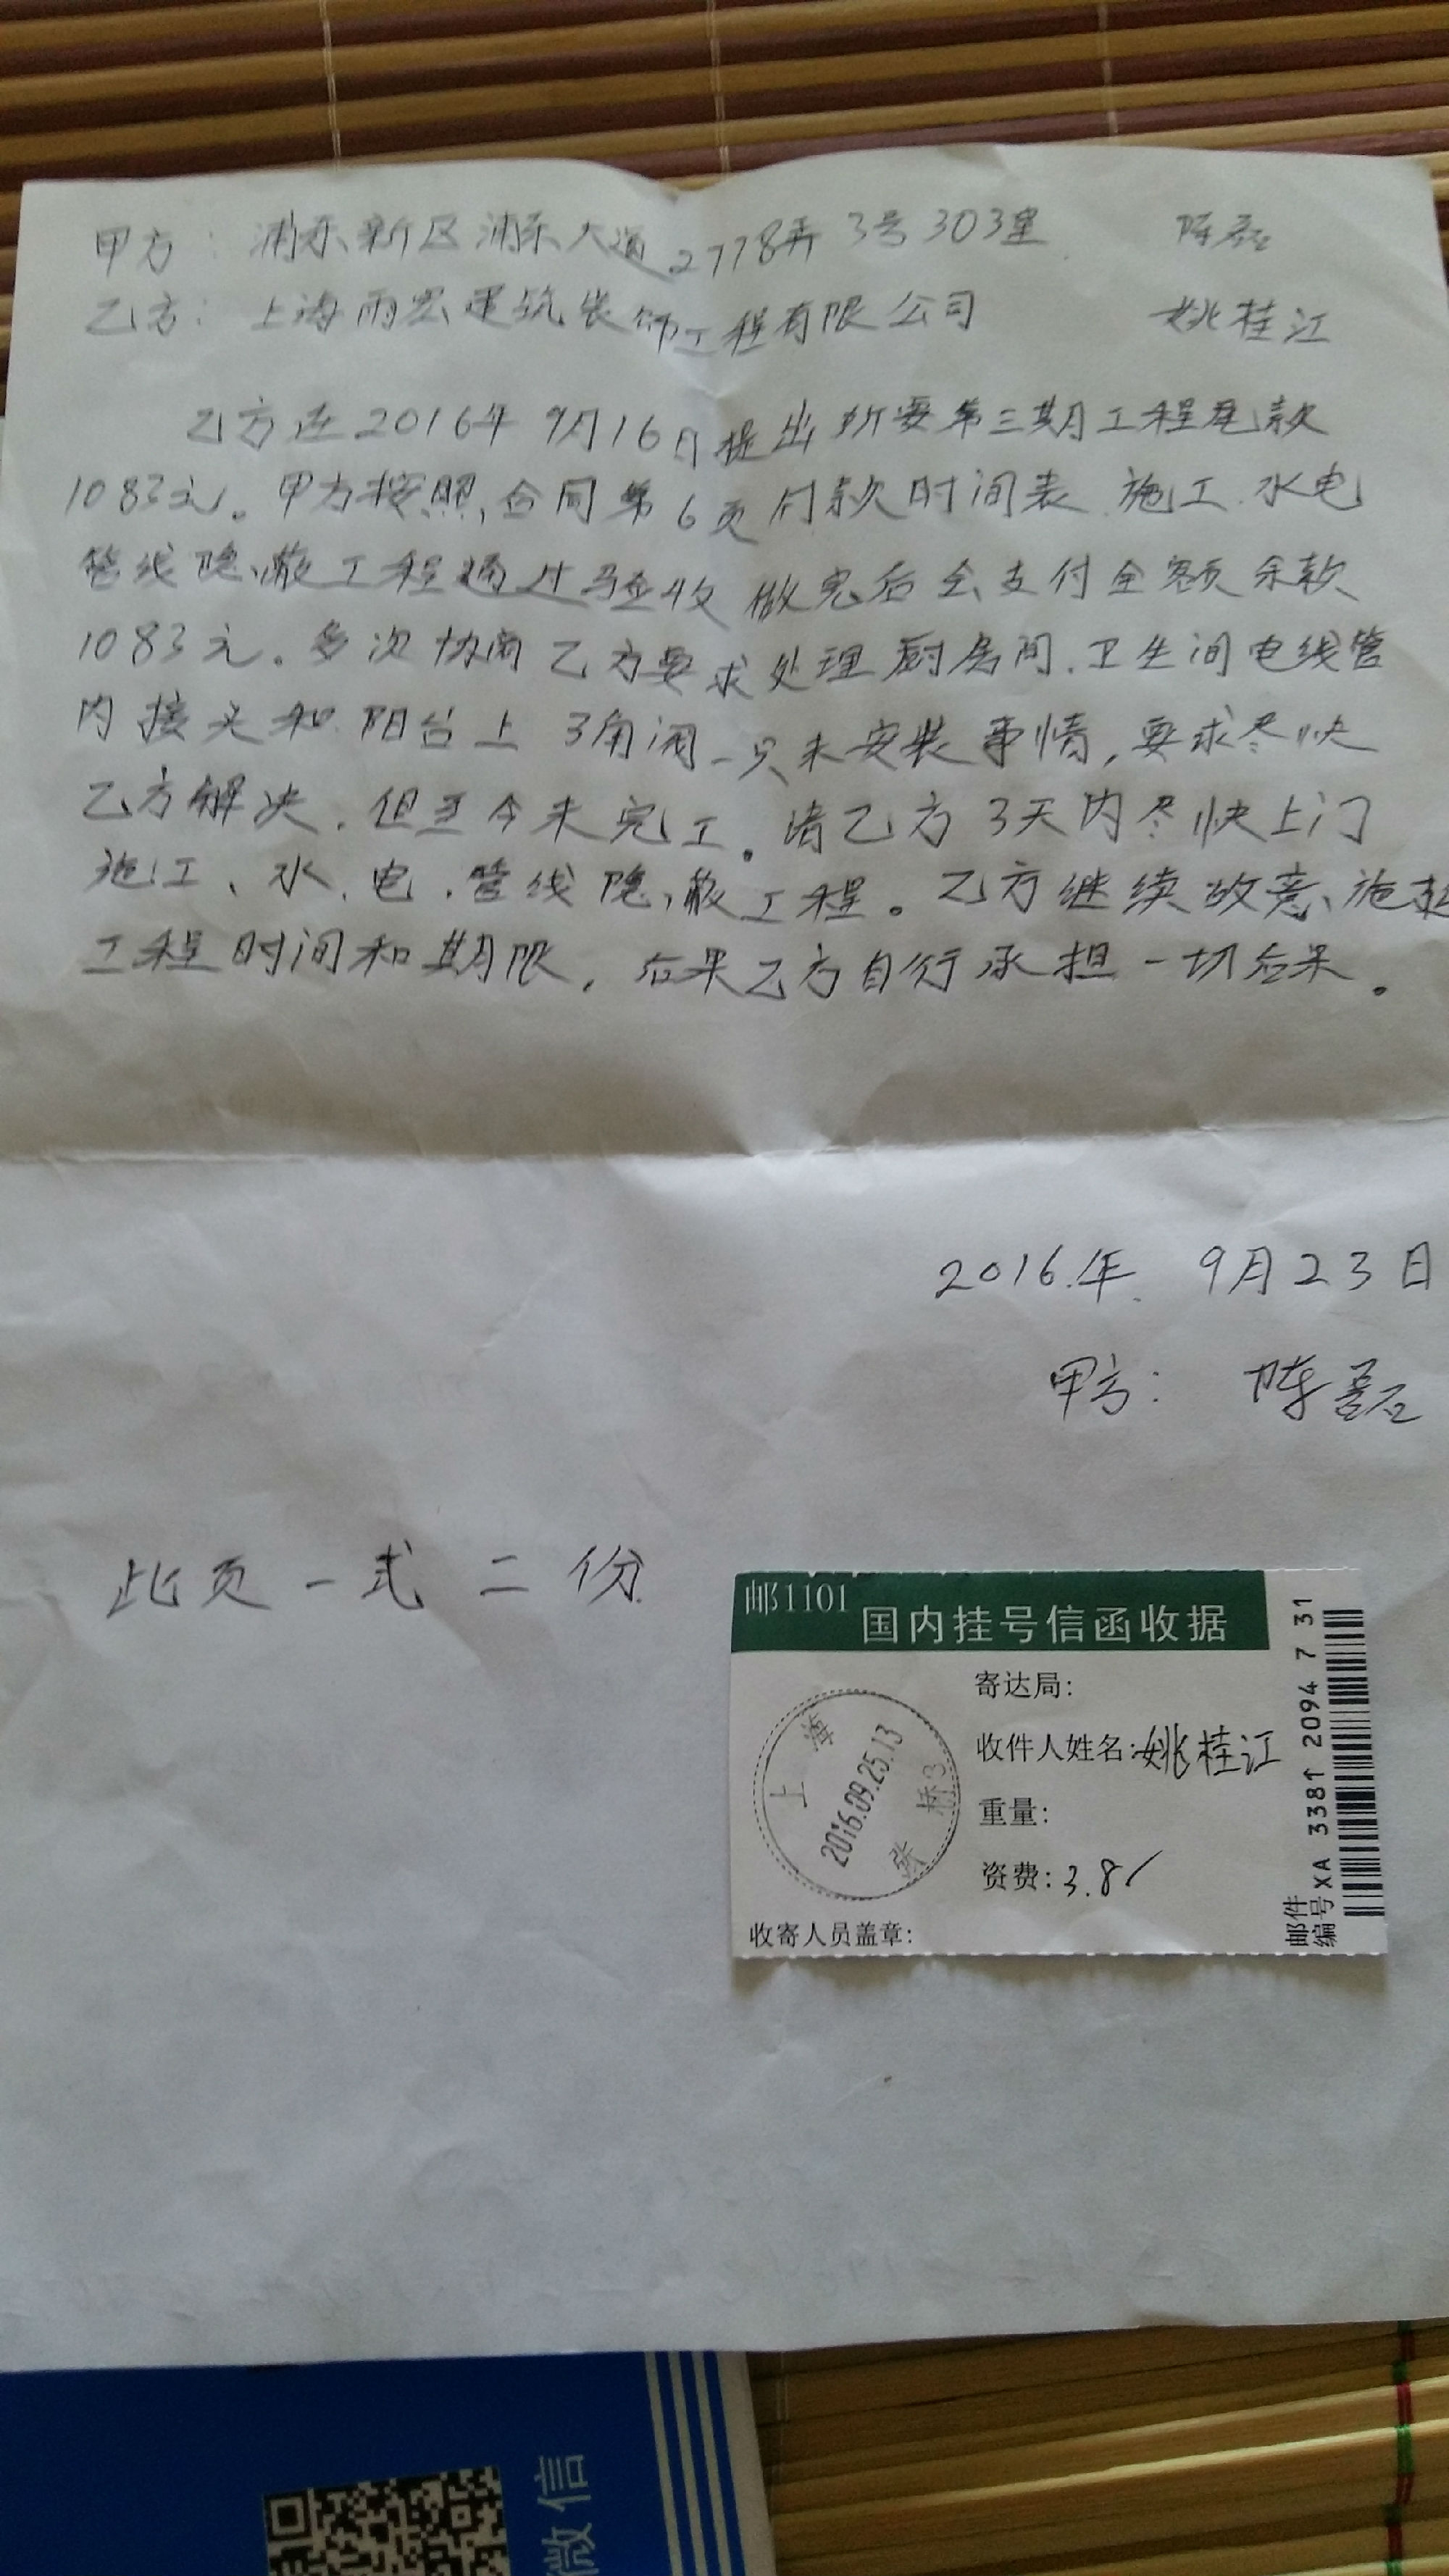 甲方：浦东新区浦东大道2778弄3号303室 陈磊
乙方：上海雨宏建筑装饰工程有限公司 姚桂江
乙方在2016年9月16日提出所要第三期工程尾款
1083元。甲方按照合同第6页付款时间表、施工、水电
管线隐蔽工程通过验收做完后会支付全额余款
1083元。多次协商乙方要求处理厨房间、卫生间电线管
内接头和阳台上3角阀一只未安装事情，要求尽快
乙方解决，但至今未完工。请乙方3天内尽快上门
施工、水、电、管线隐蔽工程。乙方继续故意、施
工程时间和期限，后果乙方自行承担一切后果。
2016年9月23日
甲方：陈磊
此页一式二份
邮1101
国内挂号信函收据
寄达局：
收件人姓名：姚桂江
重量：
资费：3.8
收寄人员盖章：
上海
2016.09.25.13
张桥3
邮件编号 XA 3381 2094 7 31
微信